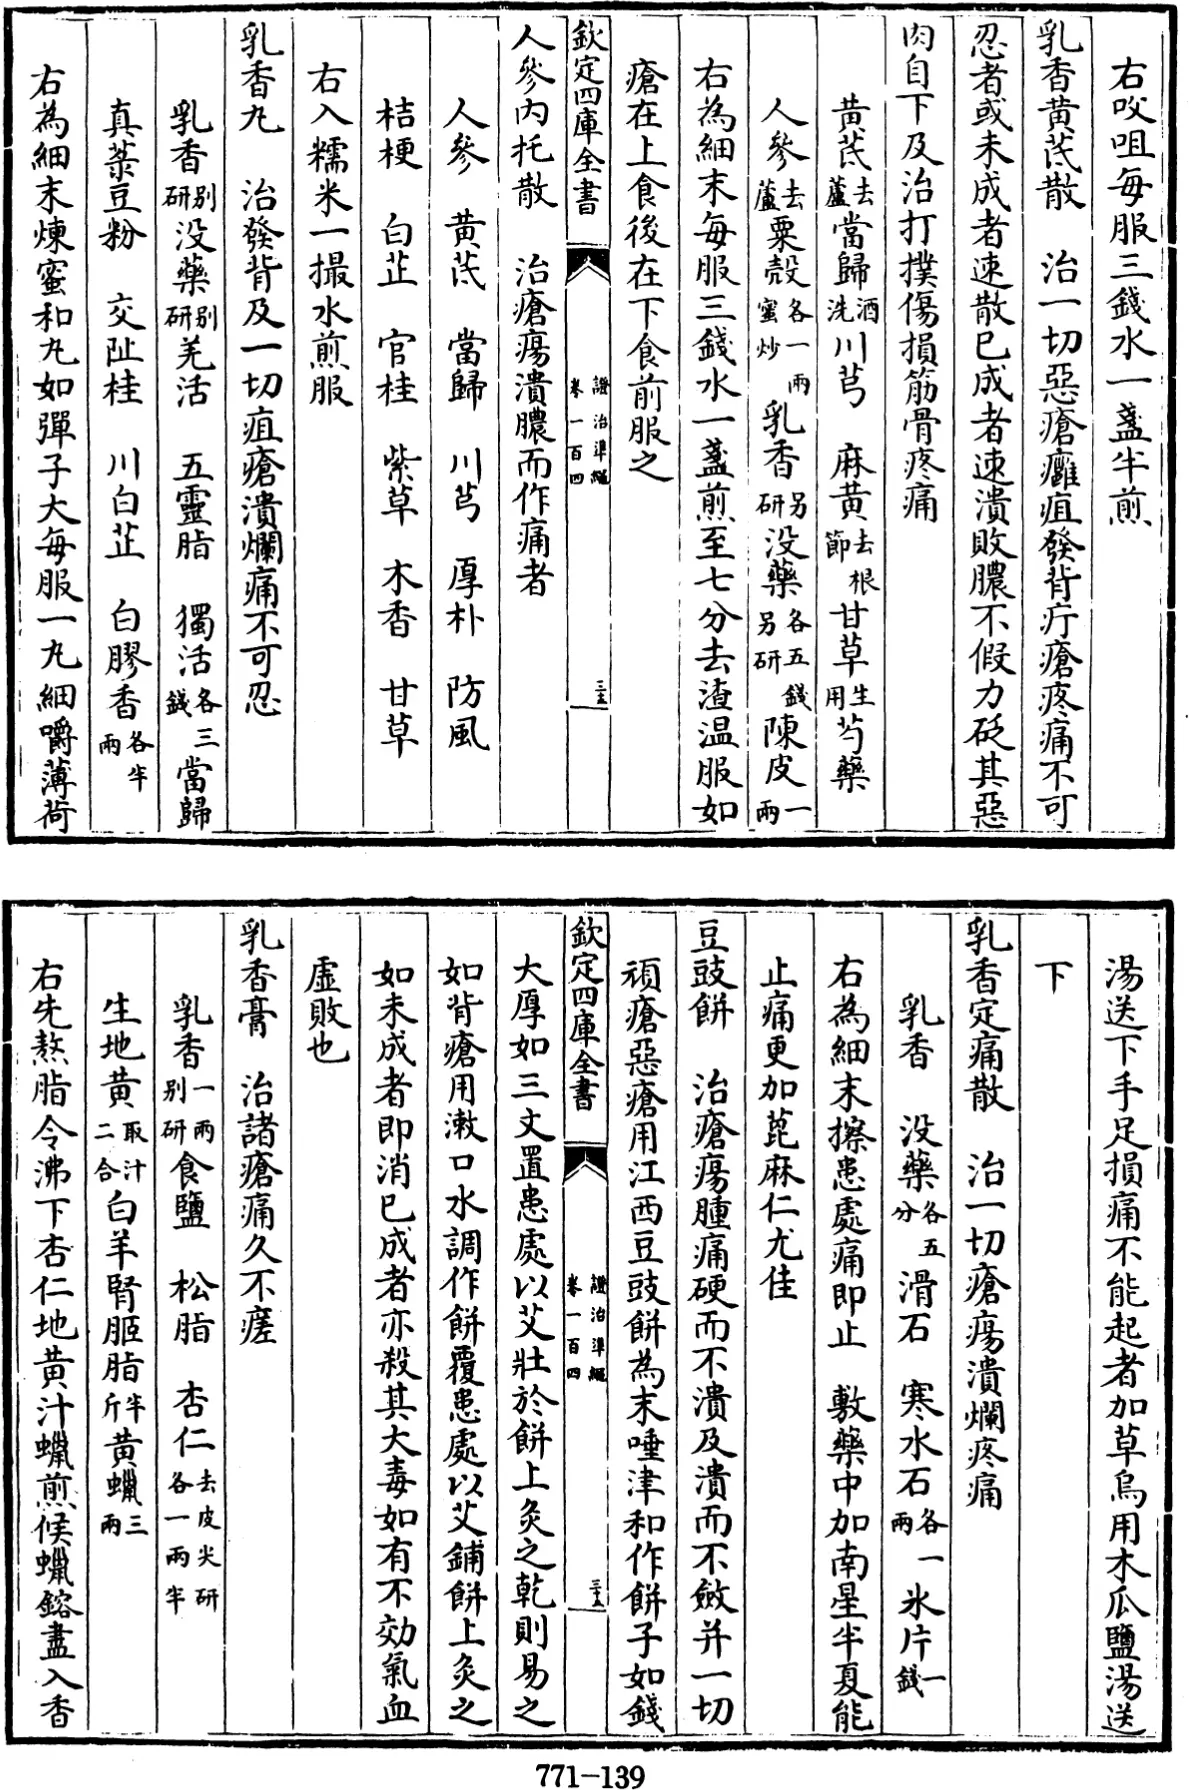 右㕮咀每服三錢水一盞半煎
乳香黄芪散　治一切惡瘡癰疽發背疔瘡疼痛不可
忍者或未成者速散已成者速潰敗膿不假力砭其惡
肉自下及治打撲傷損筋骨疼痛
黄芪去蘆當歸酒洗川芎　麻黄去根節甘草生用芍藥
人參去蘆粟殼各一兩蜜炒乳香另研没藥各五錢另研陳皮一兩
右為細末每服三錢水一盞煎至七分去渣温服如
瘡在上食後在下食前服之
欽定四庫全書　證治準繩卷一百四　三五
人參内托散　治瘡瘍潰膿而作痛者
人參　黄芪　當歸　川芎　厚朴　防風
桔梗　白芷　官桂　紫草　木香　甘草
右入糯米一撮水煎服
乳香丸　治發背及一切疽瘡潰爛痛不可忍
乳香别研没藥别研羌活　五靈脂　獨活各三錢當歸
真菉豆粉　交趾桂　川白芷　白膠香各半兩
右為細末煉蜜和丸如彈子大每服一丸細嚼薄荷
湯送下手足損痛不能起者加草烏用木瓜鹽湯送
下
乳香定痛散　治一切瘡瘍潰爛疼痛
乳香　没藥各五分滑石　寒水石各一兩氷片一錢
右為細末擦患處痛即止　敷藥中加南星半夏能
止痛更加萞麻仁尤佳
豆豉餅　治瘡瘍腫痛硬而不潰及潰而不斂并一切
頑瘡惡瘡用江西豆豉餅為末唾津和作餅子如錢
欽定四庫全書　證治準繩卷一百四　三五
大厚如三文置患處以艾壯於餅上灸之乾則易之
如背瘡用漱口水調作餅覆患處以艾鋪餅上灸之
如未成者即消已成者亦殺其大毒如有不効氣血
虛敗也
乳香膏　治諸瘡痛久不瘥
乳香一兩别研食鹽　松脂　杏仁去皮尖研各一兩半
生地黄取汁二合白羊腎脂脂半斤黄蠟三兩
右先熬脂令沸下杏仁地黄汁蠟煎候蠟鎔盡入香
771-139